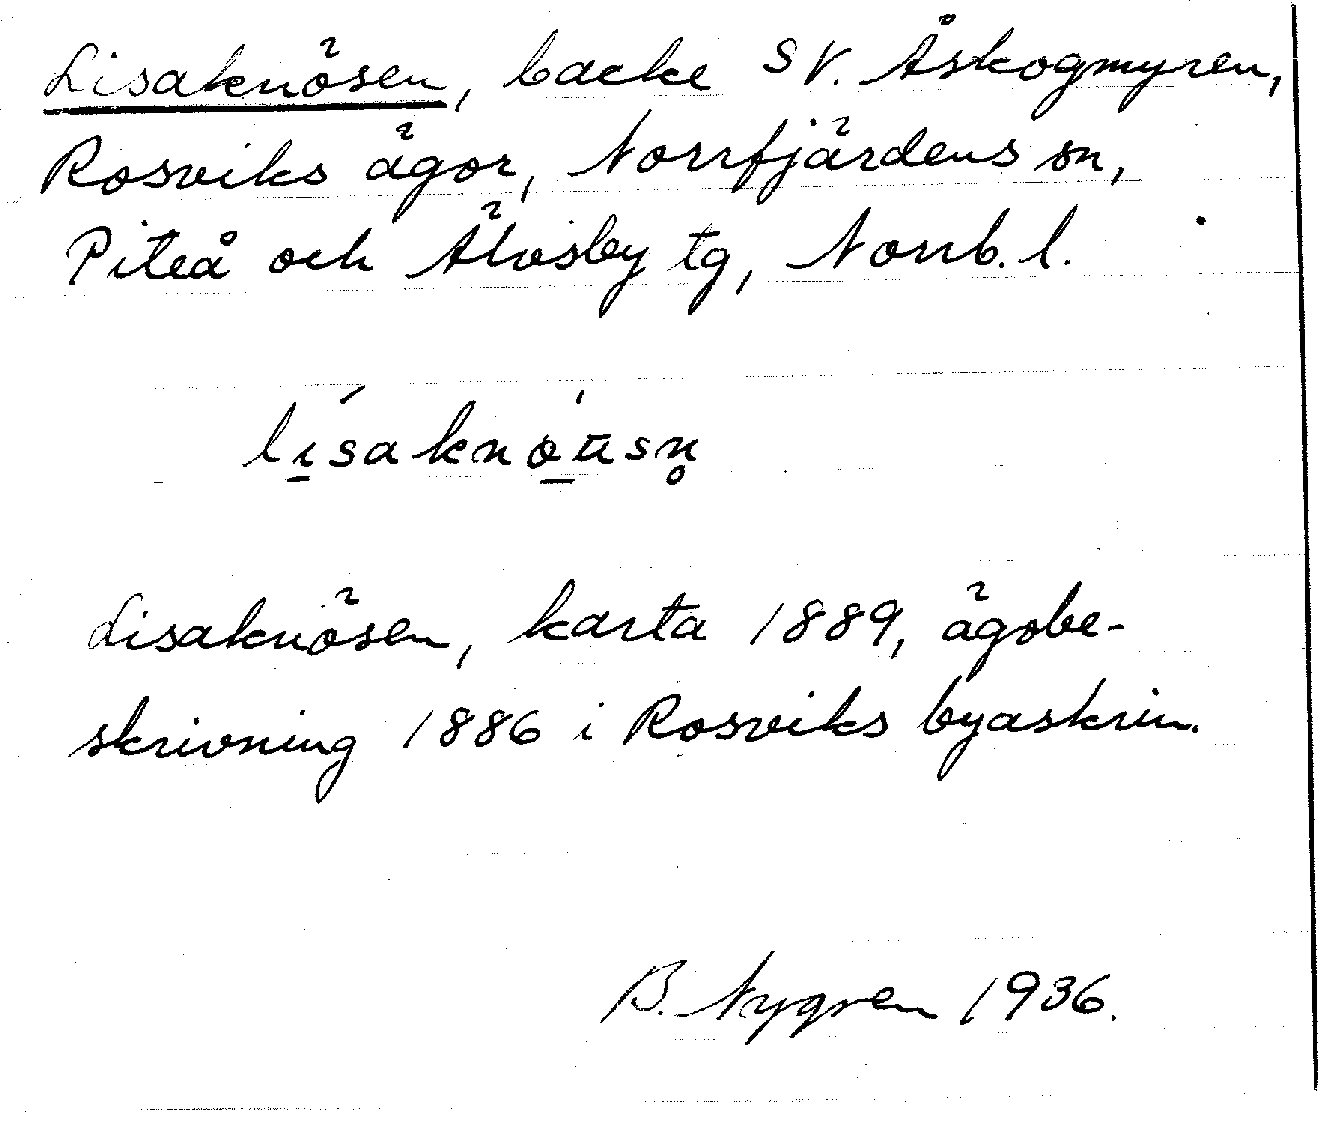 Lisaknösen, backe SV. Åskogmyren,
Rosviks ägor, Norrfjärdens sn,
Piteå och Älvsby tg, Norrb. l.
lísaknöusn̥
Lisaknösen, karta 1889, ägobe-
skrivning 1886 i Rosviks byaskrin.
B. Nygren 1936.